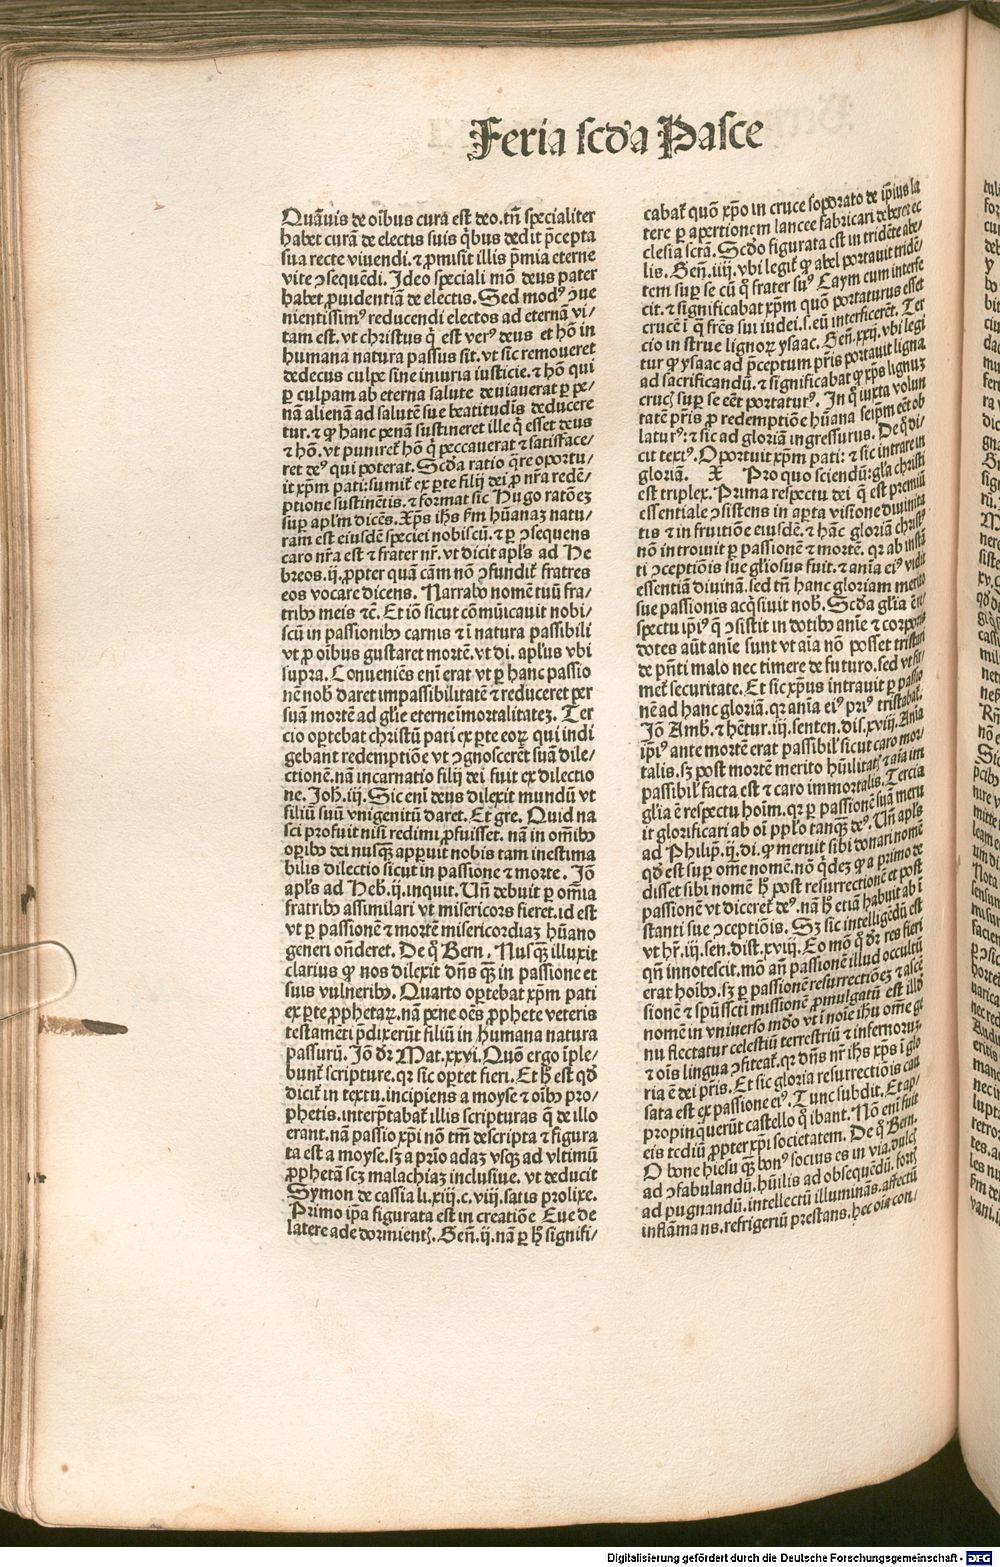 Feria scďa Pasce
Quāuis de oībus curā est deo. tn̄ specialiter
habet curā de electis suis q̇bus dedit p̄cepta
sua recte viuendi. ⁊ ꝓmisit illis p̄mia eterne
vite ↄsequēdi. Ideo speciali mō deus pater
habet ꝓuidentiā de electis. Sed modꝰ ↄue
nientissimꝰ reducendi electos ad eternā vi⸗
tam est. vt christus q̇ est verꝰ deus et hō in
humana natura passus sit. vt sic remoueret
dedecus culpe sine iniuria iusticie. ⁊ hō qui
ꝑ culpam ab eterna salute deuiauerat ꝑ pe⸗
nā alienā ad salutē sue beatitudis deducere
tur. ⁊ ꝙ hanc penā sustineret ille q̇ esset deus
⁊ hō. vt puniret᷑ hō q̇ peccauerat ⁊ satisface⸗
ret deꝰ qui poterat. Scďa ratio q̄re oportu⸗
it xp̄m pati: sumit᷑ ex ꝑte filij dei ꝓ nr̄a redē⸗
ptione sustinētis. ⁊ format sic Hugo ratōeꝫ
suꝑ apl̄m dicēs. Xp̄s ihs̄ ẜm hūanaꝫ natu⸗
ram est eiusdē speciei nobiscū. ⁊ ꝑ ↄsequens
caro nr̄a est ⁊ frater nr̄. vt dicit apl̄s ad He
breos. ij. ꝓpter quā cām nō ↄfundit᷑ fratres
eos vocare dicens. Narrabo nomē tuū fra⸗
tribꝰ meis ⁊c̄. Et iō sicut cōmūicauit nobi⸗
scū in passionibꝰ carnis ⁊ ī natura passibili
vt ꝓ oībus gustaret mortē. vt di. apl̄us vbi
supra. Conueniēs enī erat vt ꝑ hanc passio
nē nob̄ daret impassibilitatē ⁊ reduceret per
suā mortē ad gl̄ie eterne īmortalitateꝫ. Ter
cio oꝑtebat christū pati ex ꝑte eoꝝ qui indi
gebant redemptiōe vt ↄgnoscerēt suā dile⸗
ctionē. nā incarnatio filij dei fuit ex dilectio
ne. Joh̄. iij. Sic enī deus dilexit mundū vt
filiū suū vnigenitū daret. Et gre. Quid na
sci profuit nisi redimi ꝓfuisset. nā in om̄ibꝰ
oꝑibꝰ dei nusq̄ꝫ apꝑuit nobis tam inestima
bilis dilectio sicut in passione ⁊ morte. Jō
apl̄s ad Heb̄. ij. inquit. Vn̄ debuit ꝑ om̄ia
fratribꝰ assimilari vt misericors fieret. id est
vt ꝑ passionē ⁊ mortē misericordiaꝫ hūano
generi on̄deret. De q̊ Bern. Nusq̄ꝫ illuxit
clarius ꝙ nos dilexit dn̄s q̄ꝫ in passione et
suis vulneribꝰ. Quarto oꝑtebat xp̄m pati
ex ꝑte ꝓphetaꝝ. nā pene oēs ꝓphete veteris
testamēti p̄dixerūt filiū in humana natura
passurū. Jō dr̄ Mat. xxvi. Quō ergo īple⸗
bunt᷑ scripture. qꝛ sic oꝑtet fieri. Et h̄ est qď
dicit᷑ in textu. incipiens a moyse ⁊ oībꝰ pro⸗
phetis. interp̄tabat᷑ illis scripturas q̄ de illo
erant. nā passio xp̄i nō tm̄ descripta ⁊ figura
ta est a moyse. sꝫ a prīo adaꝫ vsqꝫ ad vltimū
ꝓphetā scꝫ malachiaꝫ inclusiue. vt deducit
Symon de cassia li. xiij. c. viij. satis prolixe.
Primo ip̄a figurata est in creatiōe Eue de
latere ade dormientꝭ. Gen̄. ij. nā ꝑ h̄ signifi⸗
cabat᷑ quō xp̄o in cruce soporato de ip̄ius la
tere ꝑ apertionem lancee fabricari deberet ec
clesia sctā. Scďo figurata est in tridēte abe⸗
lis. Gen̄. iiij. vbi legit᷑ ꝙ abel portauit tridē⸗
tem suꝑ se cū q̊ frater suꝰ Caym eum interfe
cit. ⁊ significabat xp̄m quō portaturus esset
crucē ī q̄ frēs sui iudei. s. eū interficerēt. Ter
cio in strue lignoꝝ ysaac. Gen̄. xxij. vbi legi
tur ꝙ ysaac ad p̄ceptum pr̄is portauit ligna
ad sacrificandū. ⁊ significabat ꝙ xp̄s lignuꝫ
crucꝭ suꝑ se eēt portaturꝰ. In q̊ iuxta volun
tatē pr̄is ꝓ redemptiōe hūana seip̄m eēt ob
laturꝰ: ⁊ sic ad gloriā ingressurus. De q̊ di⸗
cit textꝰ. Oportuit xp̄m pati: ⁊ sic intrare in
gloriā. X Pro quo sciendū: gl̄a christi
est triplex. Prima respectu dei q̄ est premiū
essentiale ↄsistens in aꝑta visione diuinita
tis ⁊ in fruitiōe eiusdē. ⁊ hāc gloriā christꝰ
nō introiuit ꝑ passionē ⁊ mortē. qꝛ ab instā
ti ↄceptiōis sue gl̄iosus fuit. ⁊ an̄ia eiꝰ vidit
essentiā diuinā. sed tn̄ hanc gloriam merito
sue passionis acq̇siuit nob̄. Scďa gl̄ia ē re⸗
spectu ip̄iꝰ q̄ ↄsistit in dotibꝰ anīe ⁊ corporis
dotes aūt anīe sunt vt aīa nō posset tristari
de p̄nti malo nec timere de futuro. sed vt fir⸗
met᷑ securitate. Et sic xp̄us intrauit ꝑ passio
nē ad hanc gloriā. qꝛ anīa eiꝰ priꝰ tristabat᷑.
Jō Amb̄. ⁊ hētur. iij. senten. dis. xviij. Anīa
ip̄iꝰ ante mortē erat passibil᷑ sicut caro mor⸗
talis. sꝫ post mortē merito hūilitatꝭ ⁊ aīa im
passibil᷑ facta est ⁊ caro immortalis. Tercia
gl̄ia ē respectu hoīm. qꝛ ꝑ passionē suā meru
it glorificari ab oī ppl̄o tanq̄ꝫ deꝰ. Vn̄ apl̄s
ad Philip̄. ij. di. ꝙ meruit sibi donari nomē
qď est suꝑ om̄e nomē. nō q̇deꝫ ꝙ a primo de
disset sibi nomē h̄ post resurrectionē et post
passionē vt diceret᷑ deꝰ. nā h̄ etiā habuit ab ī
stanti sue ↄceptiōis. Sꝫ sic intelligēdū est
vt hr̄. iij. sen. dist. xviij. Eo mō q̊ dr̄ res fieri
qn̄ innotescit. mō an̄ passionē illud occultū
erat hoībꝰ. sꝫ ꝑ passionē resurrectiōeꝫ ⁊ ascē
sionē ⁊ spūssctī missionē ꝓmulgatū est illď
nomē in vniuerso mdo vt ī noīe ihū om̄e ge
nu flectatur celestiū terrestriū ⁊ infernoruꝫ.
⁊ oīs lingua ↄfiteat᷑. qꝛ dn̄s nr̄ ihs̄ xp̄s ī glo
ria ē dei pr̄is. Et sic gloria resurrectiōis cau
sata est ex passione eiꝰ. Tunc subdit. Et ap⸗
propinquerūt castello q̊ ibant. Nō enī fuit
eis tediū ꝓpter xp̄i societatem. De q̊ Bern.
O bone hiesu q̄ꝫ bonꝰ socius es in via. dulcꝭ
ad ↄfabulandū. hūilis ad obsequēdū. fortꝭ
ad pugnandū. intellectū illuminās. affectū
inflāmans. refrigeriū prestans. hec oīa con⸗
Digitalisierung gefördert durch die Deutsche Forschungsgemeinschaft - DFG